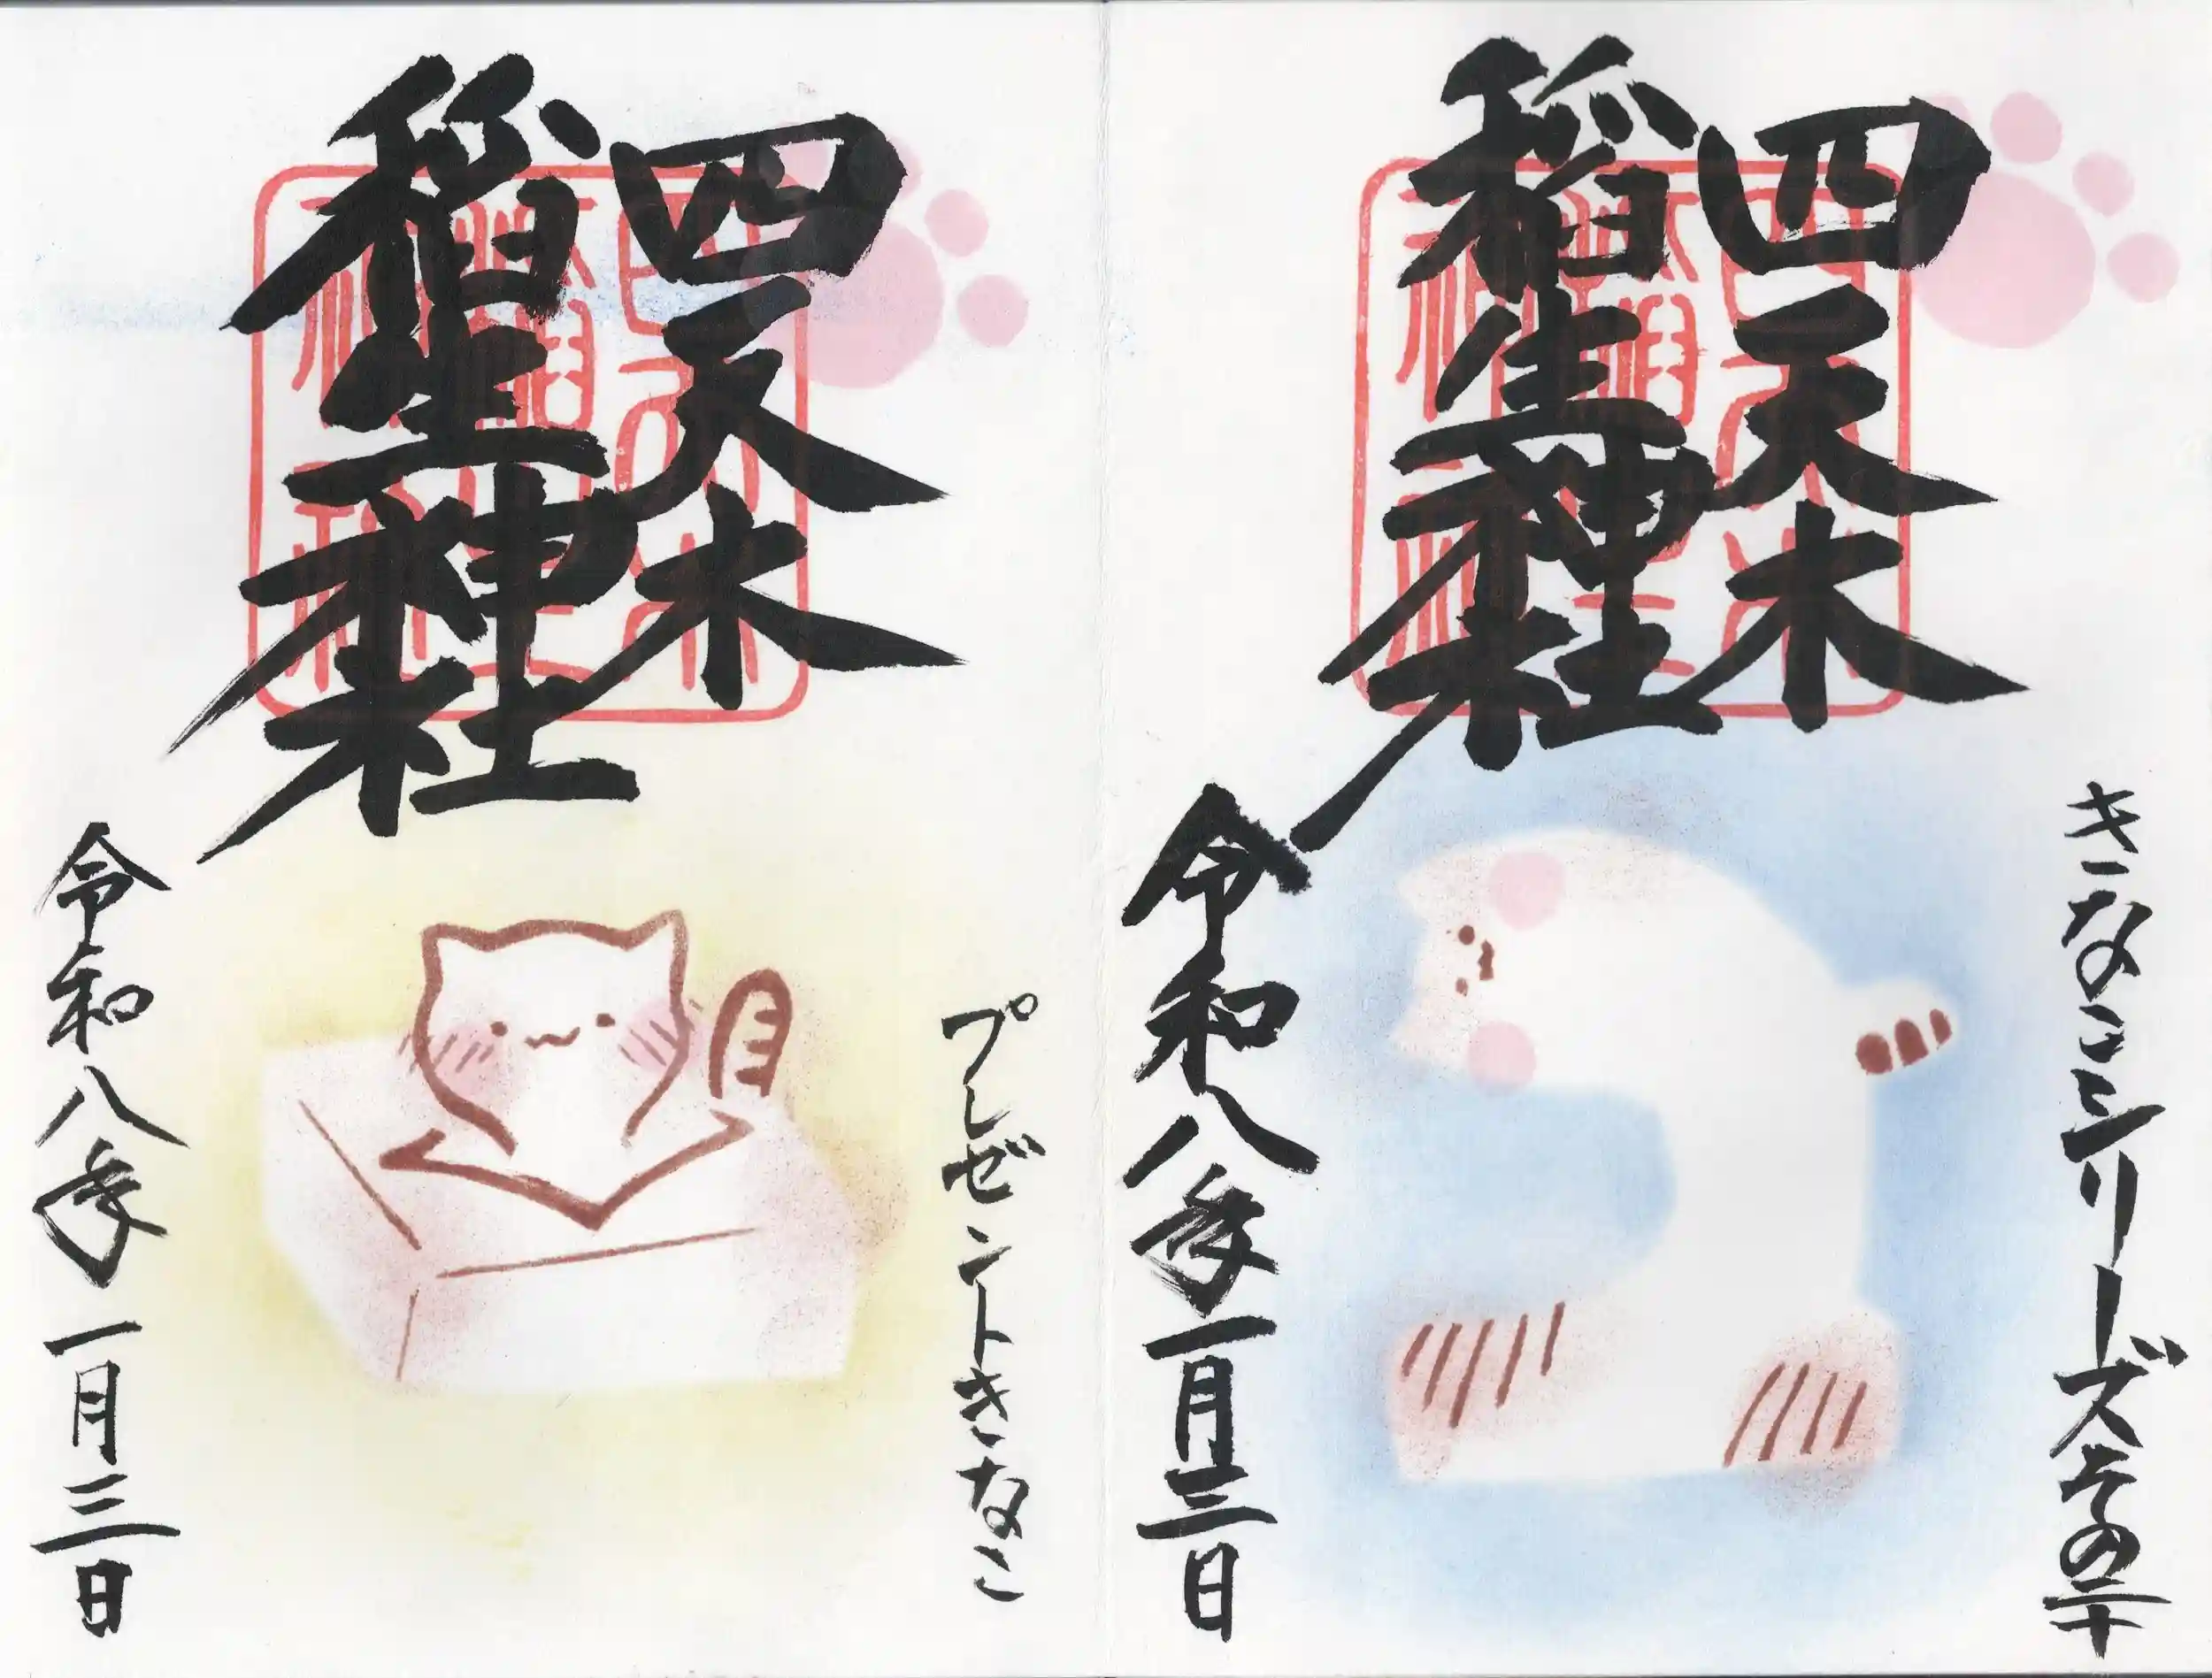 四天木
稲生神社
きなこシリーズその二十
令和八年一月三日
四天木
稲生神社
プレゼントきなこ
令和八年一月三日